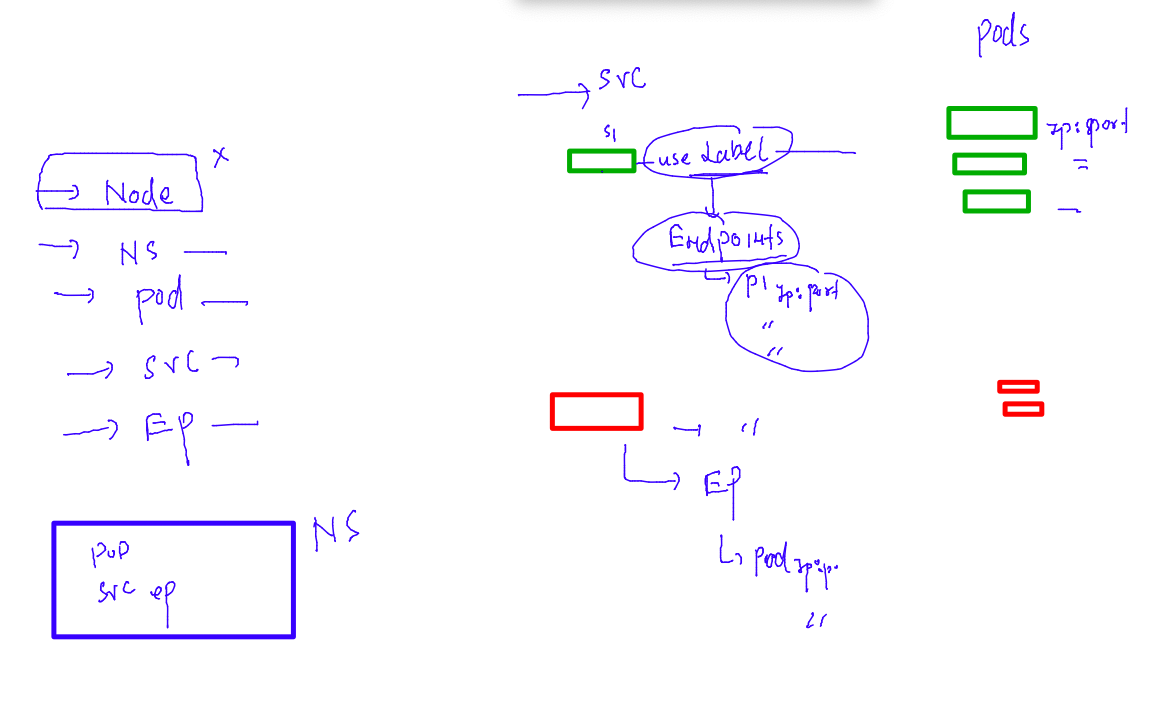 Node x
NS
pod
svc
EP
NS
pod
svc ep
svc
s1
use Label
Endpoints
p1 Ip:port
"
"
"
EP
pod Ip:p.
"
pods
Ip:port
=